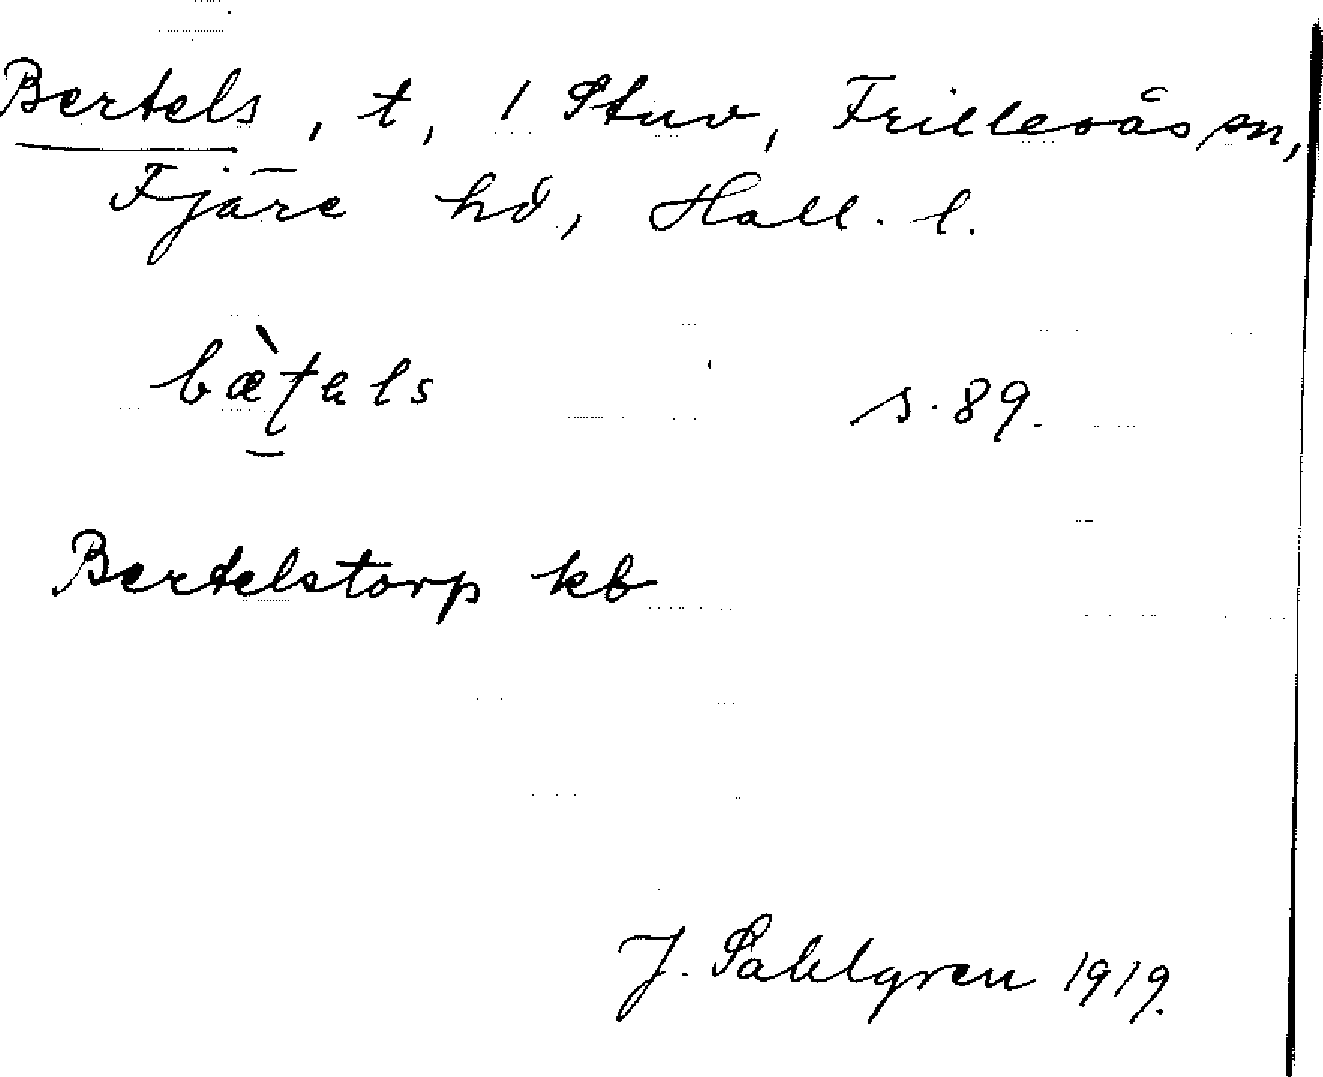 Bertels, t, 1 Stuv, Frillesås sn,
Fjäre hd, Hall. l.
bæ̀ʈals s. 89.
Bertelstorp kb
J. Sahlgren 1919.